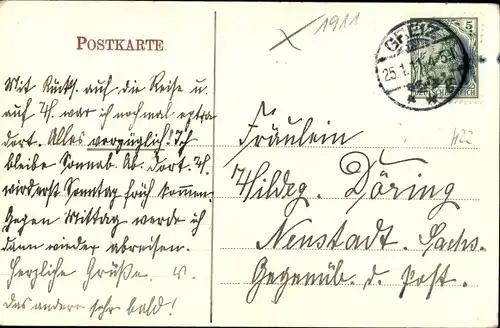 POSTKARTE
1911
Mit Rücks. auf die Reise u.
auf Th. war ich nochmal extra
dort. Alles vorzüglich! Ich
bleibe Sonnab. Ab. dort. Th.
wird erst Sonntag früh kommen.
Gegen Mittag werde ich
dann wieder abreisen.
Herzliche Grüße. W.
das andere sehr bald!
GREIZ
25.1.11.4-5N
5
DEUTSCHES REICH
H22
Fräulein
Hildeg. Döring
Neustadt. Sachs.
Gegenüb. d. Post.